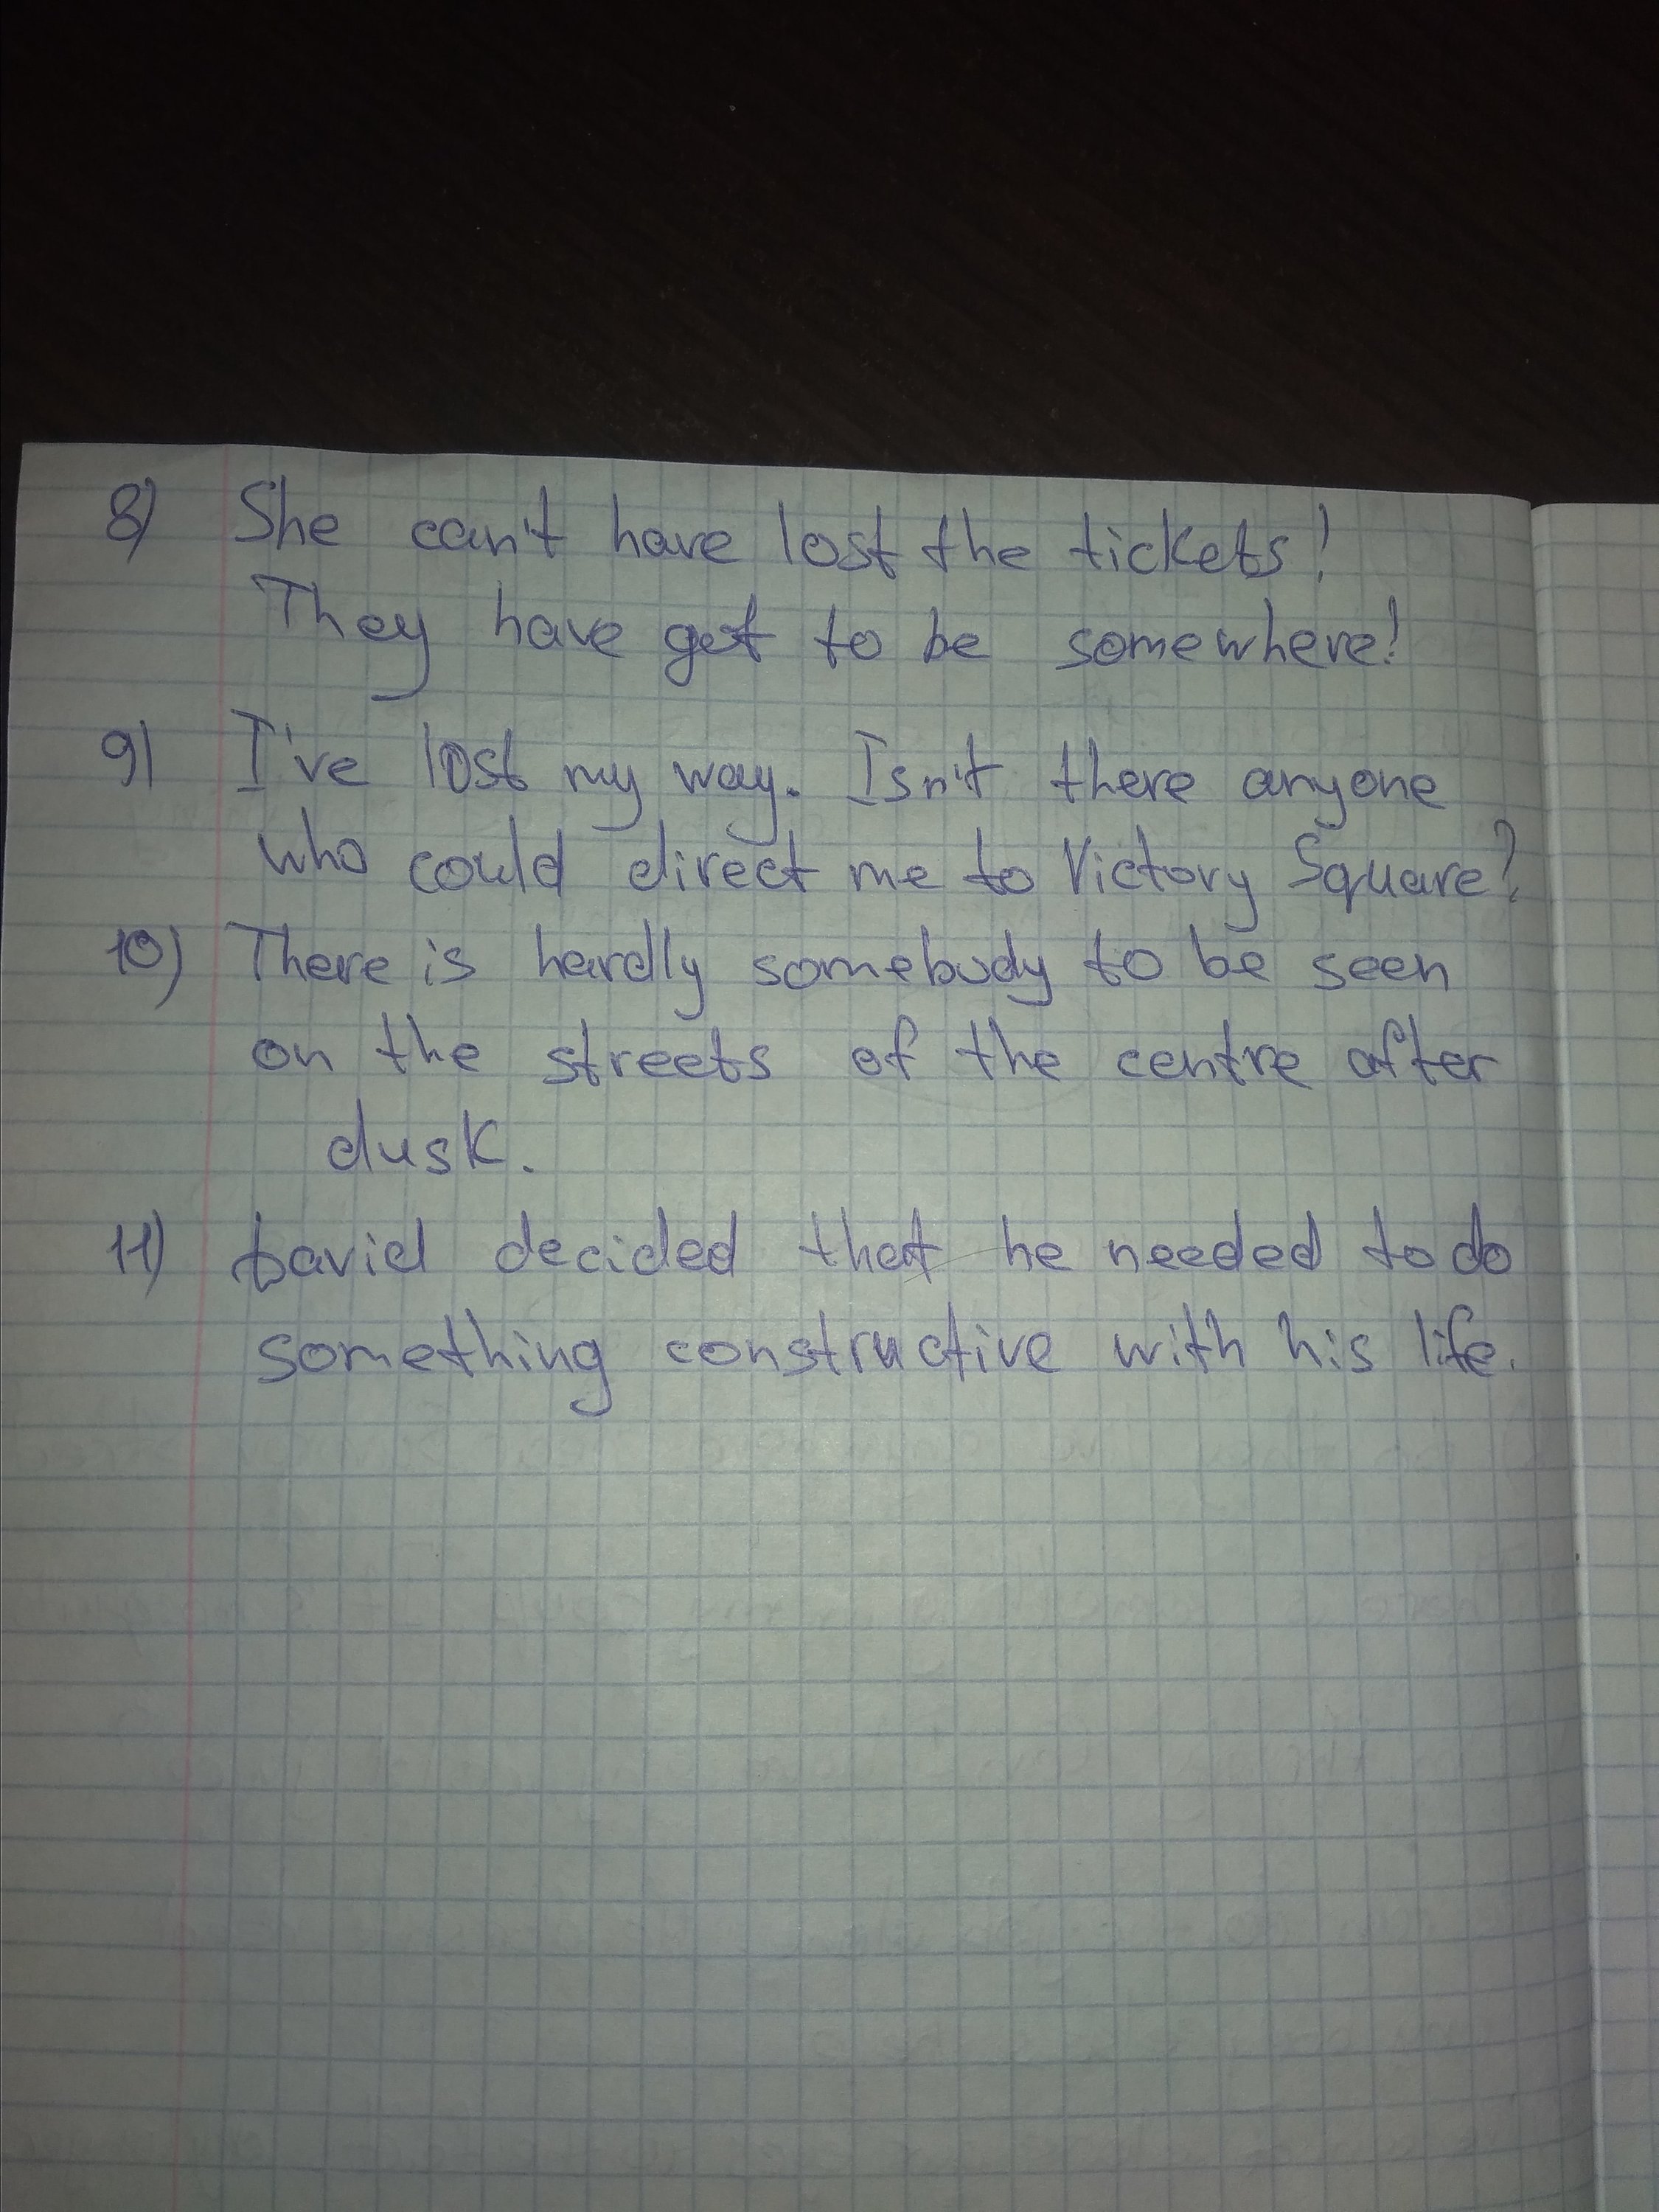 8) She can't have lost the tickets!
They have got to be somewhere!
9) I've lost my way. Isn't there anyone
who could direct me to Victory Square?
10) There is hardly somebody to be seen
on the streets of the centre after
dusk.
11) David decided that he needed to do
something constructive with his life.